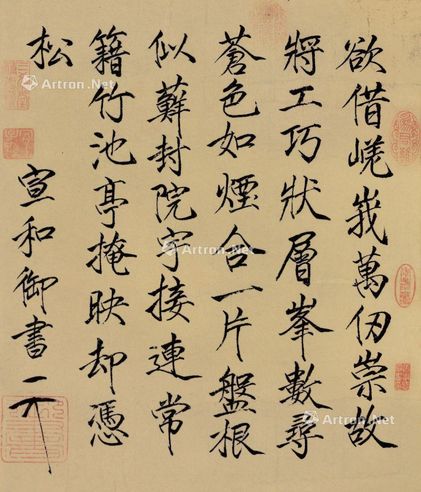 欲借嶢峩萬仞崇故
將工巧狀層峯數尋
蒼色如煙合一片盤根
似蘚封院宇接連常
籍竹池亭掩映却憑
松
宣和御書
Artron.Net
Artron.Net
Artron.Net
Artron.Net
Artron.Net